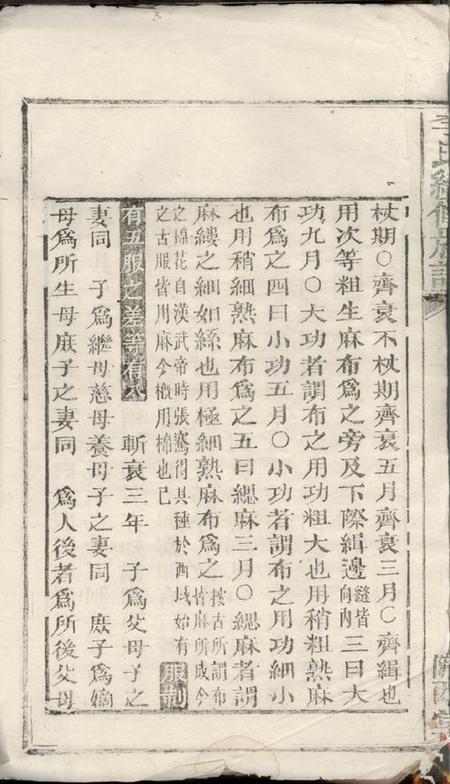 李氏續修族譜
杖期○齊衰不杖期齊衰五月齊衰三月○齊緝也
用次等粗生麻布爲之旁及下際緝邊縫皆向內三曰大
功九月○大功者謂布之用功粗大也用稍粗熟麻
布爲之四曰小功五月○小功者謂布之用功細小
也用稍細熟麻布爲之五曰緦麻三月○緦麻者謂
麻縷之細如絲也用極細熟麻布爲之按古所謂布皆麻所成今
之棉花自漢武帝時張騫得其種於西域始有
之古服皆用麻今槪用棉也已
服制
有五服之差等有八 斬衰三年 子爲父母子之
妻同 子爲繼母慈母養母子之妻同 庶子爲嫡
母爲所生母庶子之妻同 爲人後者爲所後父母